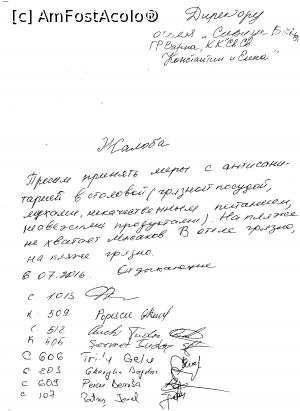 [c] AmFostAcolo®
Директору
отеля "Сивица Б
ГР Варна, К.К. Св. Св.
"Константин и Елена"
Жалоба
Просим принять меры с антисани-
тарией в столовой (грязной посудой,
мухами, некачественным питанием,
несвежими продуктами). На пляже
не хватает лежаков. В отеле грязно,
на пляже грязно.
В 07.2016. Отдыхающие
С 1015
К 509 Popescu
С 512 Tudor
К 606 Tudor
С 606 Gelu
С 203 Gheorghe Bogdan
С 609 Denisa
С 107 Ionel